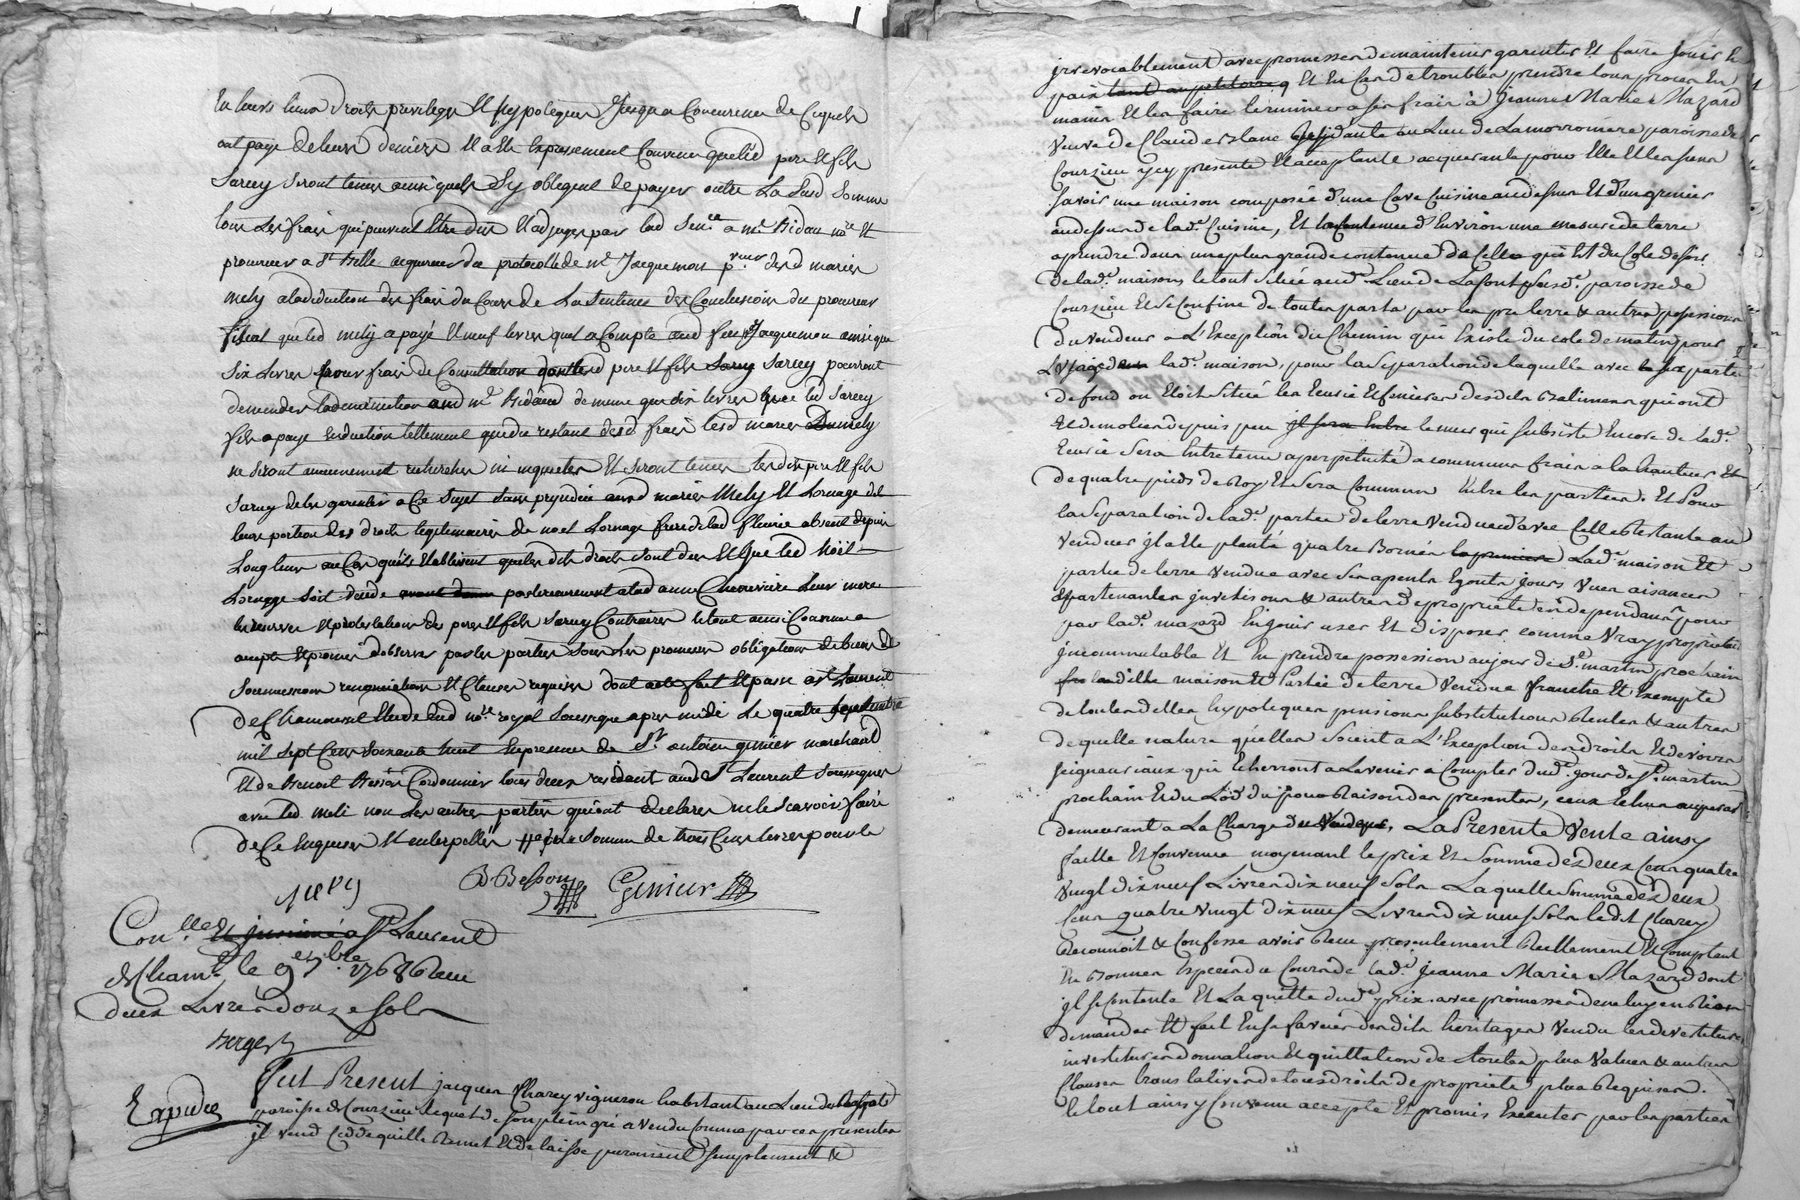 En leurs lieux droits privileges et hypoteques jusqu'a Concurrence de Ceque
ont payé de leurs deniers Et a Eté Expressement Convenu queled pere et fils
Sarcey seront tenus ainsi quils sy obligent de payer outre La Susd Somme
tous Les frais qui peuvent Etre dus Et adjuges par lad Sen.ce a m.e Bidau no.re Et
procureur a S.t Belle acquereur du protocolle de m.e Jacquemon p.reur desd maries
Mely a la deduction des frais du Cours de La Sentence des Conclusions du procureur
fiscal que led mely a payé Et neuf livres quil a Compté aud feu m.e Jacquemon ainsi que
Six Livres pour frais de Consultation dont lesd pere Et fils Sarcey pourront
demander la deduction aud m.e Bidaud de meme que dix livres que led Sarcey
fils a payé En deduction tellement que du restant desd frais lesd maries Dumely
ne seront aucunement recherches ni inquietes Et seront tenus lesdits pere Et fils
Sarcey de les garentir a Ce Sujet Sans prejudice auxd maries Mely Et Lornage de
leurs portion des droits legitimaires de noel Lornage frere de lad fleurie absent depuis
Longtems au Cas qu'ils Etablissent que lesdits droits sont dus Et que led Noël
Lornage soit decedé posterieurement a lad anne Leur mere
les reserves Et protestations des pere Et fils Sarcey Contraires letout ainsi Convenu
accepté Et promis d'observer par les parties sous Les promesses obligations de biens
Soumissions renonciations Et Clauses requises dont acte fait Et passé a S.t Laurent
de Chamousset Etude dud no.re royal Soussigné apres midi Le quatre septembre
mil sept Cens soixante huit En presence de S.r antoine genier marchand
Et de Benoit Besson Cordonnier tous deux residants aud S.t Laurent Soussignes
avec led meli non Les autres parties qui ont declaré ne le scavoir faire
de Ce Enquises Et interpellés Somme de trois Cens livres pour le
Mely
B Besson Genier
Con.lle a S.t Laurent
de Cham.t le 9 7.bre 1768 Reçu
deux Livres douze sols
Berger
Fut Present jacques Charey vigneron habitant au Lieu du
Expedié
paroisse de Courzieu Lequel de son plein gré a vendu Comme par ces presentes
il vend Cedde quitte Remet Et delaisse purement simplement &
jrrevocablement avec promesses de maintenir garentir Et faire jouir En
paix tant au petitoire q Et En Cas de troubles prendre tous proces En
mains Et les faire terminer a ses frais à Jeanne Marie Mazard
veuve de Claude Blanc residante au Lieu de Lamorroniere paroisse de
Courzieu ycy presente Et acceptante acquerante pour Elle Et les siens
Savoir une maison composée d'une Cave Cuisine au dessus Et d'un grenier
au dessus de lad.e Cuisine, Et la Contenue d'Environ une mesure de terre
a prendre dans une plus grande contenue de Celle qui Est du Coté de soir
de lad.e maison le tout Situé aud.t Lieu de Lafont susd.e paroisse de
Courzieu Et se Confine de toutes parts par les pre terre & autres possessions
du vendeur a L'Exception du Chemin qui Existe du coté de matin pour
L'usage de lad.e maison, pour la separation de laquelle avec la partie
de fond ou Etoit Situé les Ecurie Et fenieres desdits Batimens qui ont
Eté demolies depuis peu jl sera Entre le mur qui subsiste Encore de lad.e
Ecurie Sera Entretenu a perpetuité a communs frais a la hauteur
de quatre pieds de Roy Et Sera Commun Entre les parties, Et Pour
la Separation de lad.e partie de terre vendue d'avec Celle Restante au
vendeur jl a Eté planté quatre Bornes Lad.e maison Et
partie de terre vendue avec Ses apents Egouts jours vues aisances
appartenances jurctions & autres de proprieté en dependants pour
par lad.e mazard En jouir user Et disposer comme vray proprietaire
jncommutable Et En prendre possession au jour de S.t martin prochain
ladite maison Et Partie de terre vendue franche Et Exempte
de toutes dettes hypoteques pensions substitutions Rentes & autres
de quelle nature qu'elles Soient a L'Exception des droits Et devoirs
seigneuriaux qui Echerront a Lavenir a Compter dud.t jour de S.t martin
prochain Et du Lod du pour Raison des presentes, ceux Echus auparavt
demeurant a La Charge du vendeur, La Presente vente ainsy
faitte Et Convenue moyenant le prix Et Somme de deux Cens quatre
vingt dix neuf Livres dix neuf sols Laquelle Somme de deux
Cens quatre vingt dix neuf Livres dix neuf Sols le dit Charey
Reconnoit & Confesse avoir Reçu presentement Reellement Et Comptant
En Bonnes Especes du Cours de lad.e Jeanne Marie Mazard dont
jl se contente Et La quitte dud.t prix avec promesses de ne luy en Rien
demander Et fait En sa faveur desdits heritages vendu les devestitures
investitures donnation Et quittation de toutes plus values & autres
Clauses translatives de tous droits de proprieté plus Requises.
le tout ainsy Convenu accepté Et promis Executer par les parties